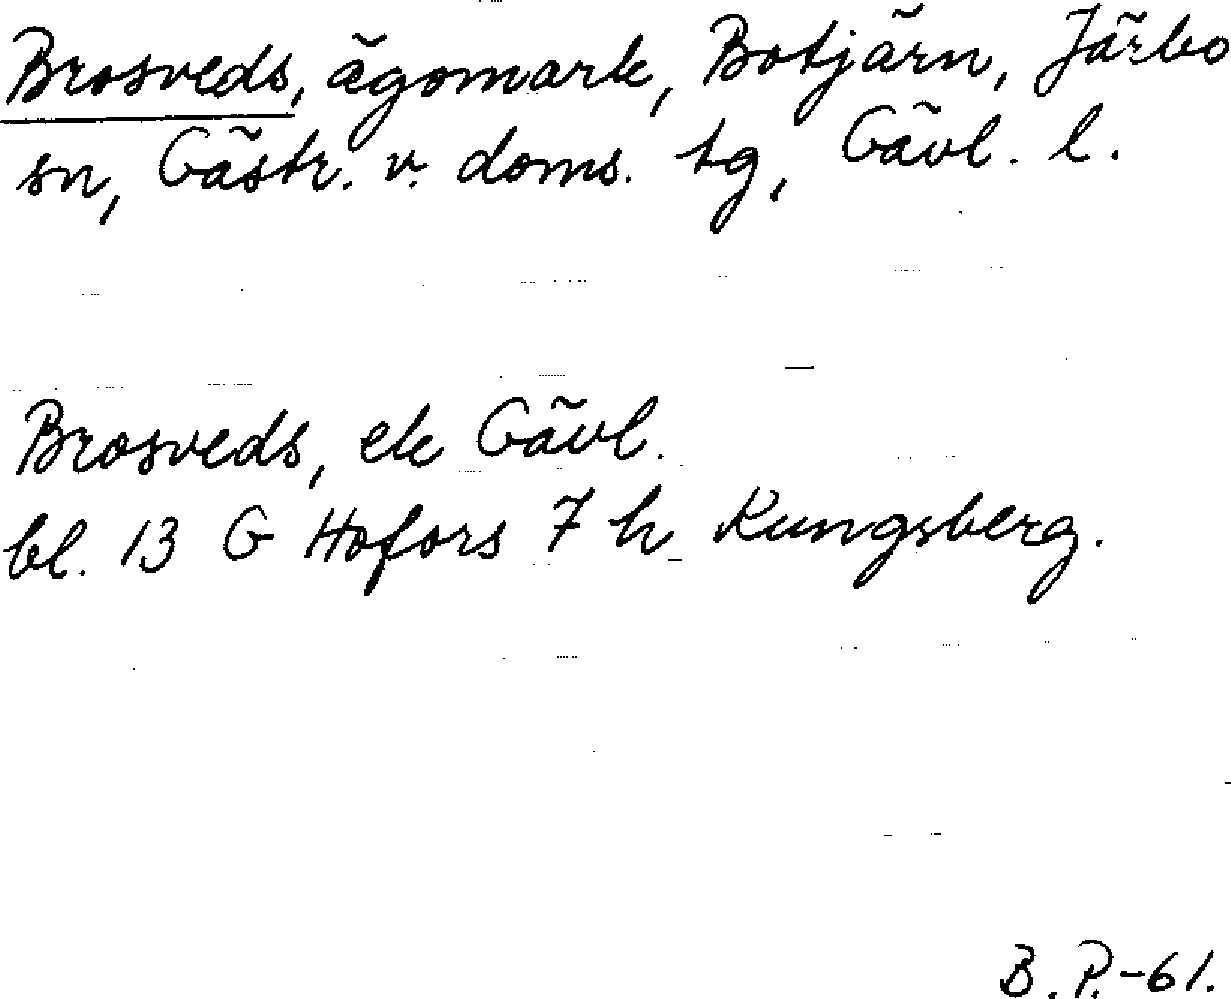 Brosveds, ägomark, Botjärn, Järbo
sn, Gästr. v. doms. tg, Gävl. l.
Brosveds, ek Gävl.
bl. 13 G Hofors 7 h Kungsberg.
B. P. -61.